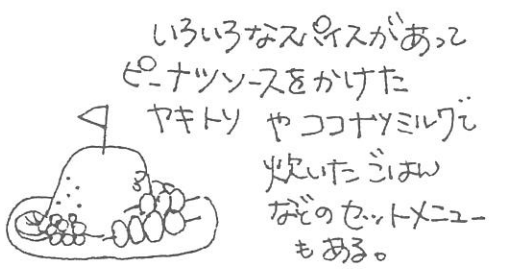 いろいろなスパイスがあって
ピーナツソースをかけた
ヤキトリ や ココナツミルクで
炊いたごはん
などのセットメニュー
もある。